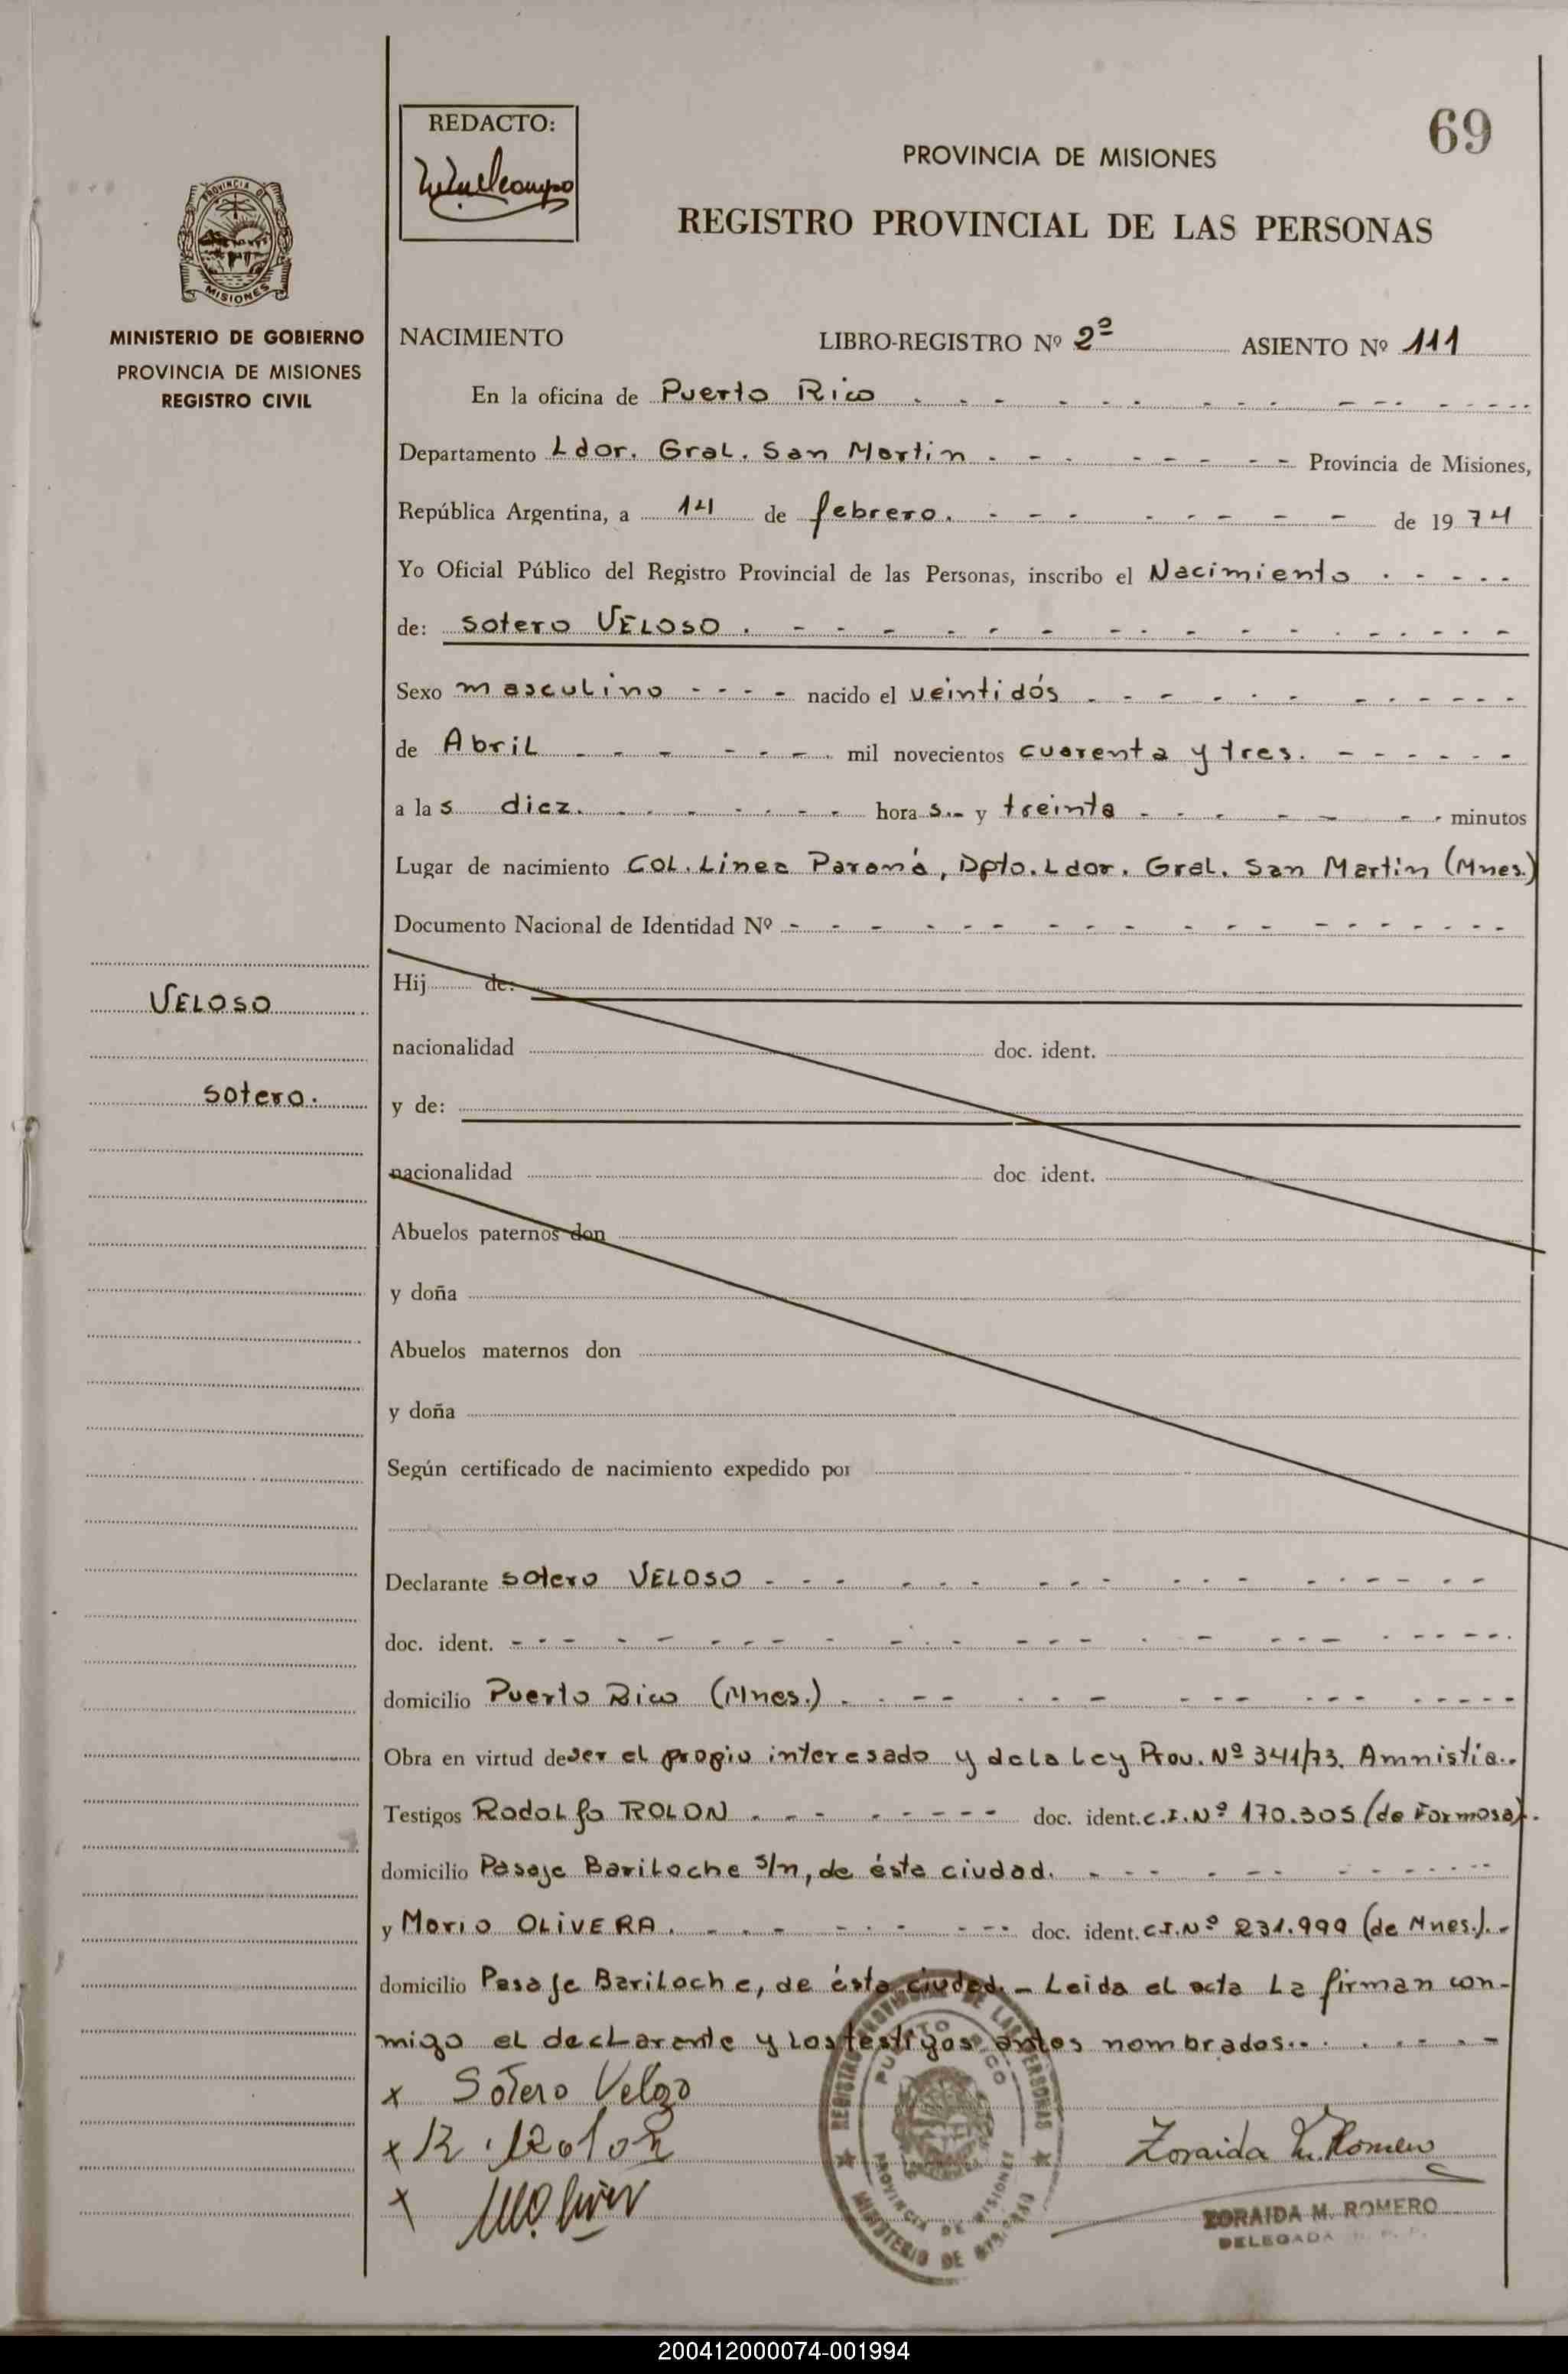 69
REDACTO:
PROVINCIA DE MISIONES
REGISTRO PROVINCIAL DE LAS PERSONAS
PROVINCIA DE
MISIONES
MINISTERIO DE GOBIERNO
PROVINCIA DE MISIONES
REGISTRO CIVIL
NACIMIENTO LIBRO-REGISTRO Nº 2º ASIENTO Nº 111
En la oficina de Puerto Rico
Departamento Ldor. Gral. San Martin Provincia de Misiones,
República Argentina, a 14 de febrero. de 1974
Yo Oficial Público del Registro Provincial de las Personas, inscribo el Nacimiento
de: Sotero VELOSO.
Sexo masculino nacido el veintidós
de Abril mil novecientos cuarenta y tres.
a las diez. horas.- y treinta minutos
Lugar de nacimiento Col. Linea Paraná, Dpto. Ldor. Gral. San Martin (Mnes.)
Documento Nacional de Identidad Nº
Hij de:
VELOSO
nacionalidad doc. ident.
Sotero.
y de:
nacionalidad doc ident.
Abuelos paternos don
y doña
Abuelos maternos don
y doña
Según certificado de nacimiento expedido por
Declarante Sotero VELOSO
doc. ident.
domicilio Puerto Rico (Mnes.)
Obra en virtud de ser el propio interesado y de la Ley Prov. Nº 341/73. Amnistía.-
Testigos Rodolfo ROLON doc. ident. C.I. Nº 170.305 (de Formosa).
domicilio Pasaje Bariloche s/n, de ésta ciudad.
y Mario OLIVERA. doc. ident. C.I. Nº 231.999 (de Mnes.).-
domicilio Pasaje Bariloche, de ésta ciudad.- Leida el acta la firman con-
migo el declarante y los testigos antes nombrados.
x Sotero Velozo
x R. Rolon
x
REGISTRO PROVINCIAL DE LAS PERSONAS
PUERTO RICO
PROVINCIA DE MISIONES
MINISTERIO DE GOBIERNO
Zoraida M. Romero
ZORAIDA M. ROMERO
DELEGADA
200412000074-001994